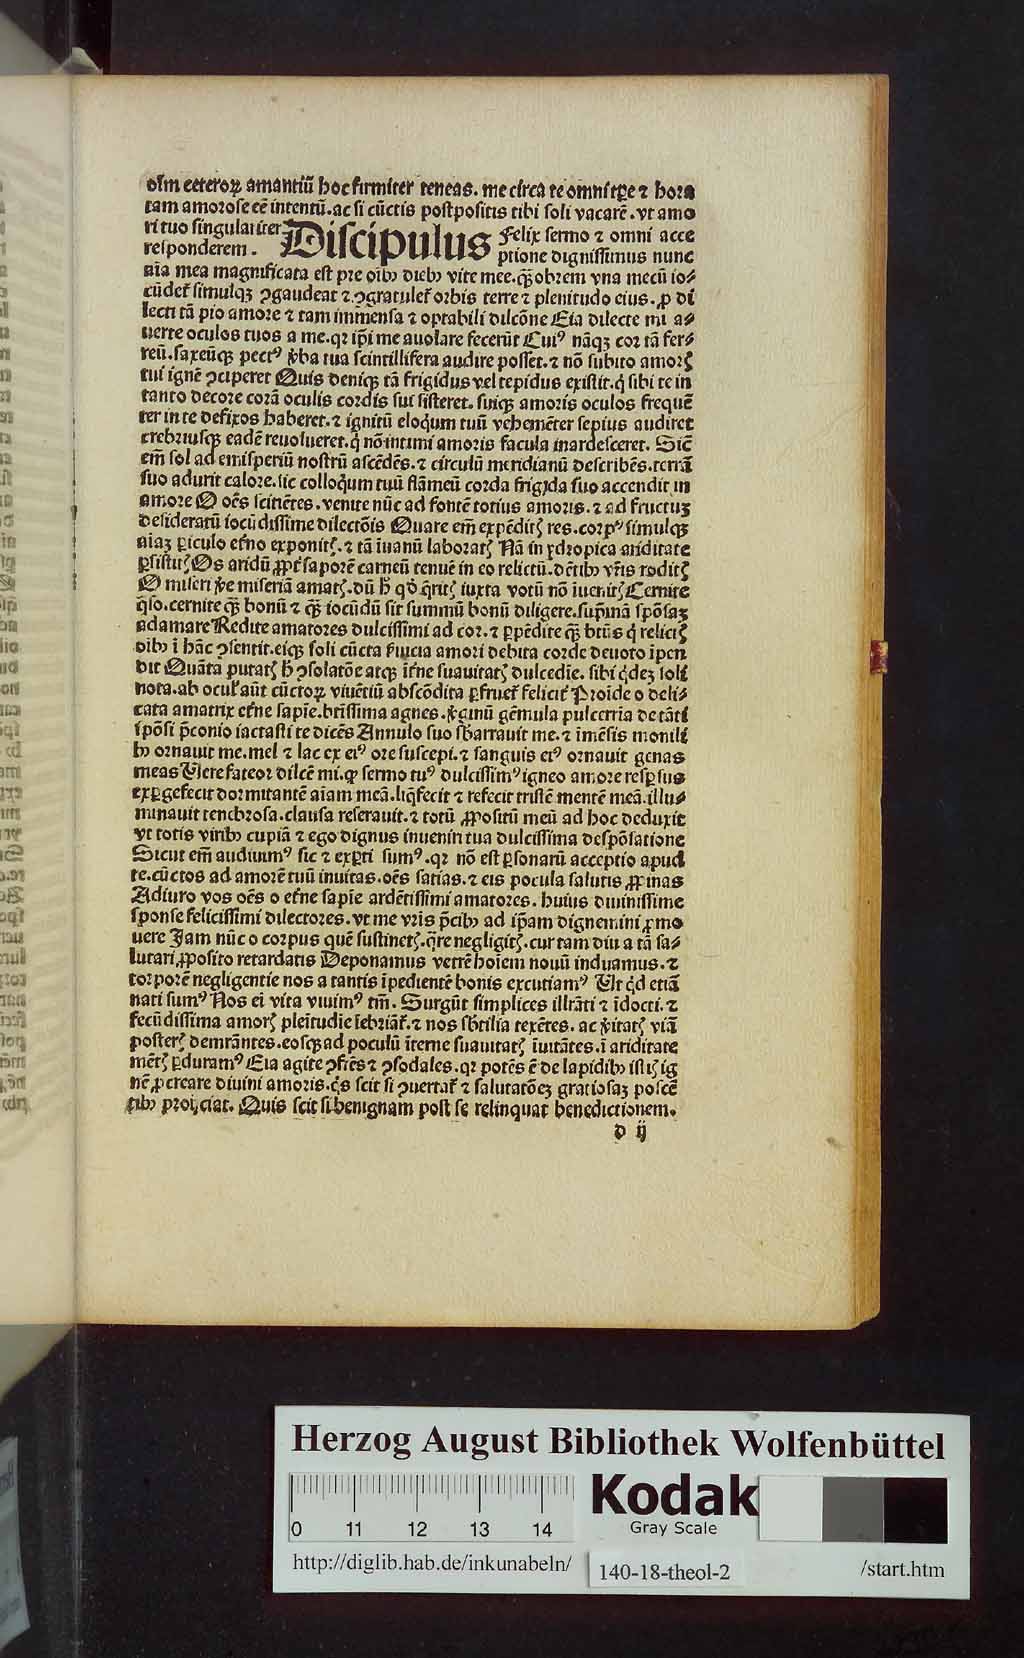 oīm ceteroꝝ amantiū hoc firmiter teneas. me circa te omni tꝑe ⁊ hora
tam amorose eē intentū. ac si cūctis postpositis tibi soli vacarē. vt amo
ri tuo singulariter
responderem. Discipulus Felix sermo ⁊ omni acce
ptione dignissimus nunc
aīa mea magnificata est pre oībꝰ diebꝰ vite mee. qͣꝫobrem vna mecū io⸗
cūdet᷑ simulqꝫ ꝯgaudeat ⁊ ꝯgratulet᷑ orbis terre ⁊ plenitudo eius. ꝓ di
lecti tā pio amore ⁊ tam immensa ⁊ optabili dilcōne Eia dilecte mi a⸗
uerte oculos tuos a me. qꝛ ip̄i me auolare fecerūt Cuiꝰ nāqꝫ cor tā fer⸗
reū. saxeūqꝫ pectꝰ v̄ba tua scintillifera audire posset. ⁊ nō subito amorꝭ
tui ignē ꝯciperet Quis deniqꝫ tā frigidus vel tepidus existit. q̇ sibi te in
tanto decore corā oculis cordis sui sisteret. suiqꝫ amoris oculos frequē
ter in te defixos haberet. ⁊ ignitū eloq̇um tuū vehemēter sepius audiret
crebriusqꝫ eadē reuolueret. q̇ nō intimi amoris facula inardesceret. Sic̄
em̄ sol ad emisperiū nostrū ascēdēs. ⁊ circulū meridianū describēs. terrā
suo adurit calore. sic colloq̇um tuū flāmeū corda frigida suo accendit in
amore O oēs scitiētes. venite nūc ad fontē totius amoris. ⁊ ad fructuꝫ
desideratū iocūdissime dilectōis Quare em̄ expēditꝭ res. corpꝰ simulqꝫ
aīaꝫ ꝑiculo et̄no exponitꝭ. ⁊ tā īuanū laboratꝭ Nā in ydropica ariditate
ꝑsistitꝭ Os aridū ꝓpt̄ saporē carneū tenuē in eo relictū. dētibꝰ vr̄is roditꝭ
O miseri v̄e miseriā amatꝭ. dū h̄ qd̄ q̄ritꝭ iuxta votū nō īuenitꝭ Cernite
q̄so. cernite qͣꝫ bonū ⁊ qͣꝫ iocūdū sit summū bonū diligere. sup̄mā spōsaꝫ
adamare Redite amatores dulcissimi ad cor. ⁊ ꝑpēdite qͣꝫ bt̄us q̇ relictꝭ
oībꝰ ī hāc ꝯsentit. eiqꝫ soli cūcta ẜuicia amori debita corde deuoto īpen
dit Quāta putatꝭ h̄ ꝯsolatōe atqꝫ īt̄ne suauitatꝭ dulcedīe. sibi q̇deꝫ soli
nota. ab ocul̕ aūt cūctoꝝ viuētiū abscōdita ꝑfruet᷑ felicit᷑ Proīde o deli⸗
cata amatrix et̄ne sapīe. btīssima agnes. v̄ginū gēmula pulcerrīa de tāti
spōsi p̄conio iactasti te dicēs Annulo suo sb̄arrauit me. ⁊ īmēsis monili
bꝰ ornauit me. mel ⁊ lac ex eiꝰ ore suscepi. ⁊ sanguis eiꝰ ornauit genas
meas Vere fateor dilcē mi. ꝙ sermo tuꝰ dulcissimꝰ igneo amore resꝑsus
exꝑgefecit dormitantē aīam meā. liq̄fecit ⁊ refecit tristē mentē meā. illu⸗
minauit tenebrosa. clausa reserauit. ⁊ totū ꝓpositū meū ad hoc deduxit
vt totis viribꝰ cupiā ⁊ ego dignus inueniri tua dulcissima despōsatione
Sicut em̄ audiuimꝰ sic ⁊ exꝑti sumꝰ. qꝛ nō est ꝑsonarū acceptio apud
te. cūctos ad amorē tuū inuitas. oēs satias. ⁊ eis pocula salutis ꝓpinas
Adiuro vos oēs o et̄ne sapīe ardētissimi amatores. huius diuinissime
sponse felicissimi dilectores. vt me vr̄is p̄cibꝰ ad ip̄am dignemini ꝓmo
uere Jam nūc o corpus quē sustinetꝭ. q̄re negligitꝭ. cur tam diu a tā sa⸗
lutari ꝓposito retardatis Deponamus veterē hoīem nouū induamus. ⁊
torporē negligentie nos a tantis īpedientē bonis excutiamꝰ Ut q̇d etiā
nati sumꝰ Nos ei vita viuimꝰ tm̄. Surgūt simplices illrāti ⁊ īdocti. ⁊
fecūdissima amorꝭ pleītudīe īebriāt᷑. ⁊ nos sb̄tilia texētes. ac v̄itatꝭ viā
posterꝭ demrāntes. eosqꝫ ad poculū īterne suauitatꝭ īuitātes. ī ariditate
mētꝭ ꝑduramꝰ Eia agite ꝯfr̄es ⁊ ꝯsodales. qꝛ potēs ē de lapidibꝰ istꝭ ig
nē ꝓcreare diuini amoris. q̇s scit si ꝯuertat᷑ ⁊ salutatōeꝫ gratiosaꝫ poscē
tibꝰ proijciat. Quis scit si benignam post se relinquat benedictionem.
d ij
Herzog August Bibliothek Wolfenbüttel
0 11 12 13 14
Kodak
Gray Scale
http://diglib.hab.de/inkunabeln/ 140-18-theol-2 /start.htm